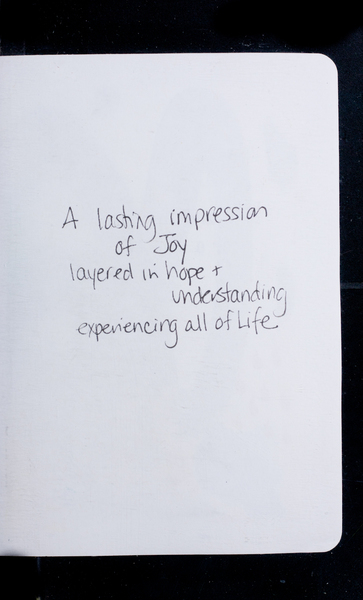 A lasting impression
of Joy
layered in hope +
understanding
experiencing all of Life